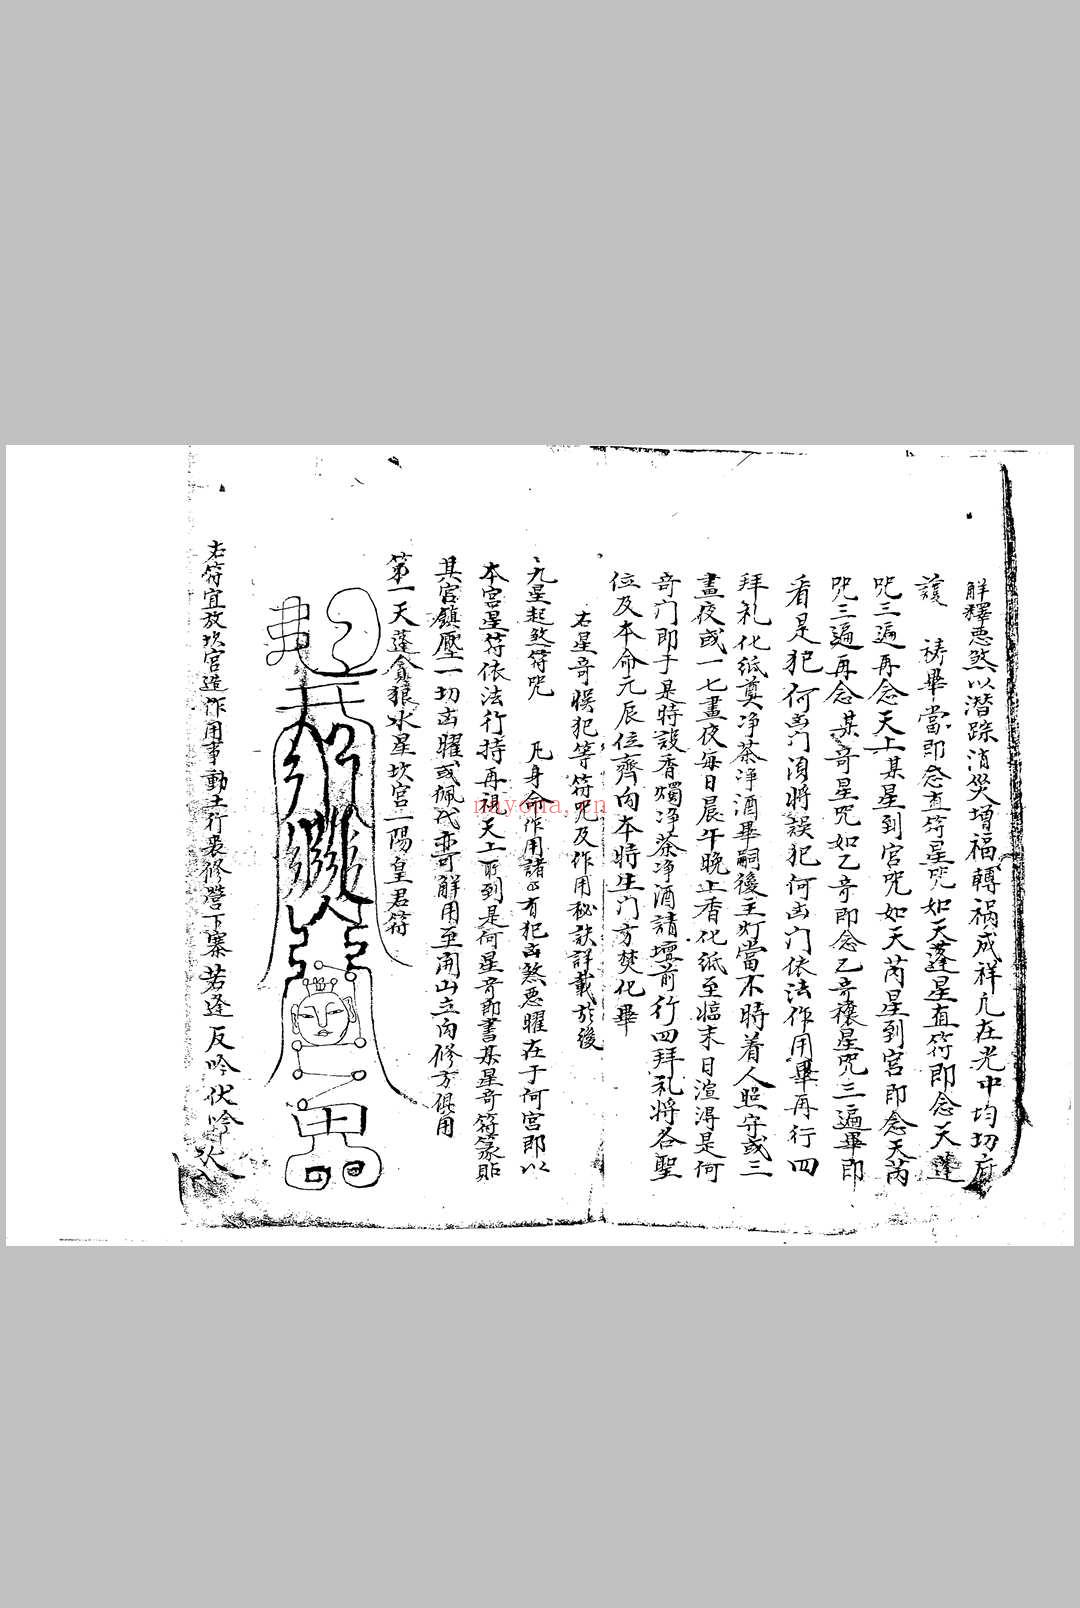 解釋惡煞以潛踪消災增福轉禍成祥凡在光中均切府
護　禱畢當即念直符星咒如天蓬星直符即念天蓬
咒三遍再念天上某星到宮咒如天芮星到宮即念天芮
咒三遍再念某奇星咒如乙奇即念乙奇禳星咒三遍畢即
看是犯何凶门須將誤犯何凶门依法作用畢再行四
拜礼化纸奠净茶净酒畢嗣後主灯當不時着人照守或三
晝夜或一七晝夜每日晨午晚上香化纸至臨末日渲淂是何
奇门即于是時設香燭净茶净酒請壇前行四拜礼將各聖
位及本命元辰位齊向本時生门方焚化畢
右星奇悞犯等符咒及作用秘訣詳載於後
九星起煞符咒　凡身命作用諸有犯凶煞惡曜在于何宮即以
本宮星符依法行持再視天上所到是何星奇即書某星奇符篆貼
其宮鎮壓一切凶曜或佩代亦可解用至開山立向修方俱用
第一天蓬貪狼水星坎宮一陽皇君符
右符宜放坎宮造作用事動土行喪修營下寨若逢反吟伏吟
nhyona.cn